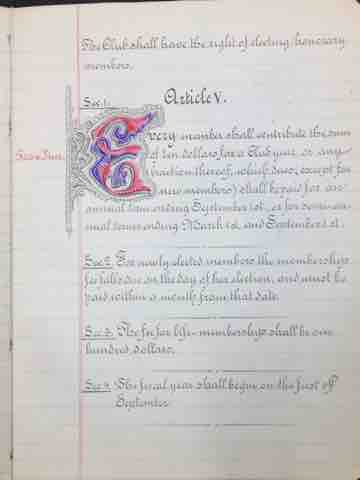 The Club shall have the right of electing honorary
members.
Article V.
Sec. 1.
Every member shall contribute the sum
of ten dollars for a Club year, or any
fraction thereof, which dues, except for
new members) shall be paid for an
annual term ending September 1st, or for semi-an-
nual terms ending March 1st, and September 1st.
Sec. 2. For newly elected members the membership
fee falls due on the day of her election, and must be
paid within a month from that date.
Sec. 3. The fee for life-membership shall be one
hundred dollars.
Sec. 4. The fiscal year shall begin on the first of
September.